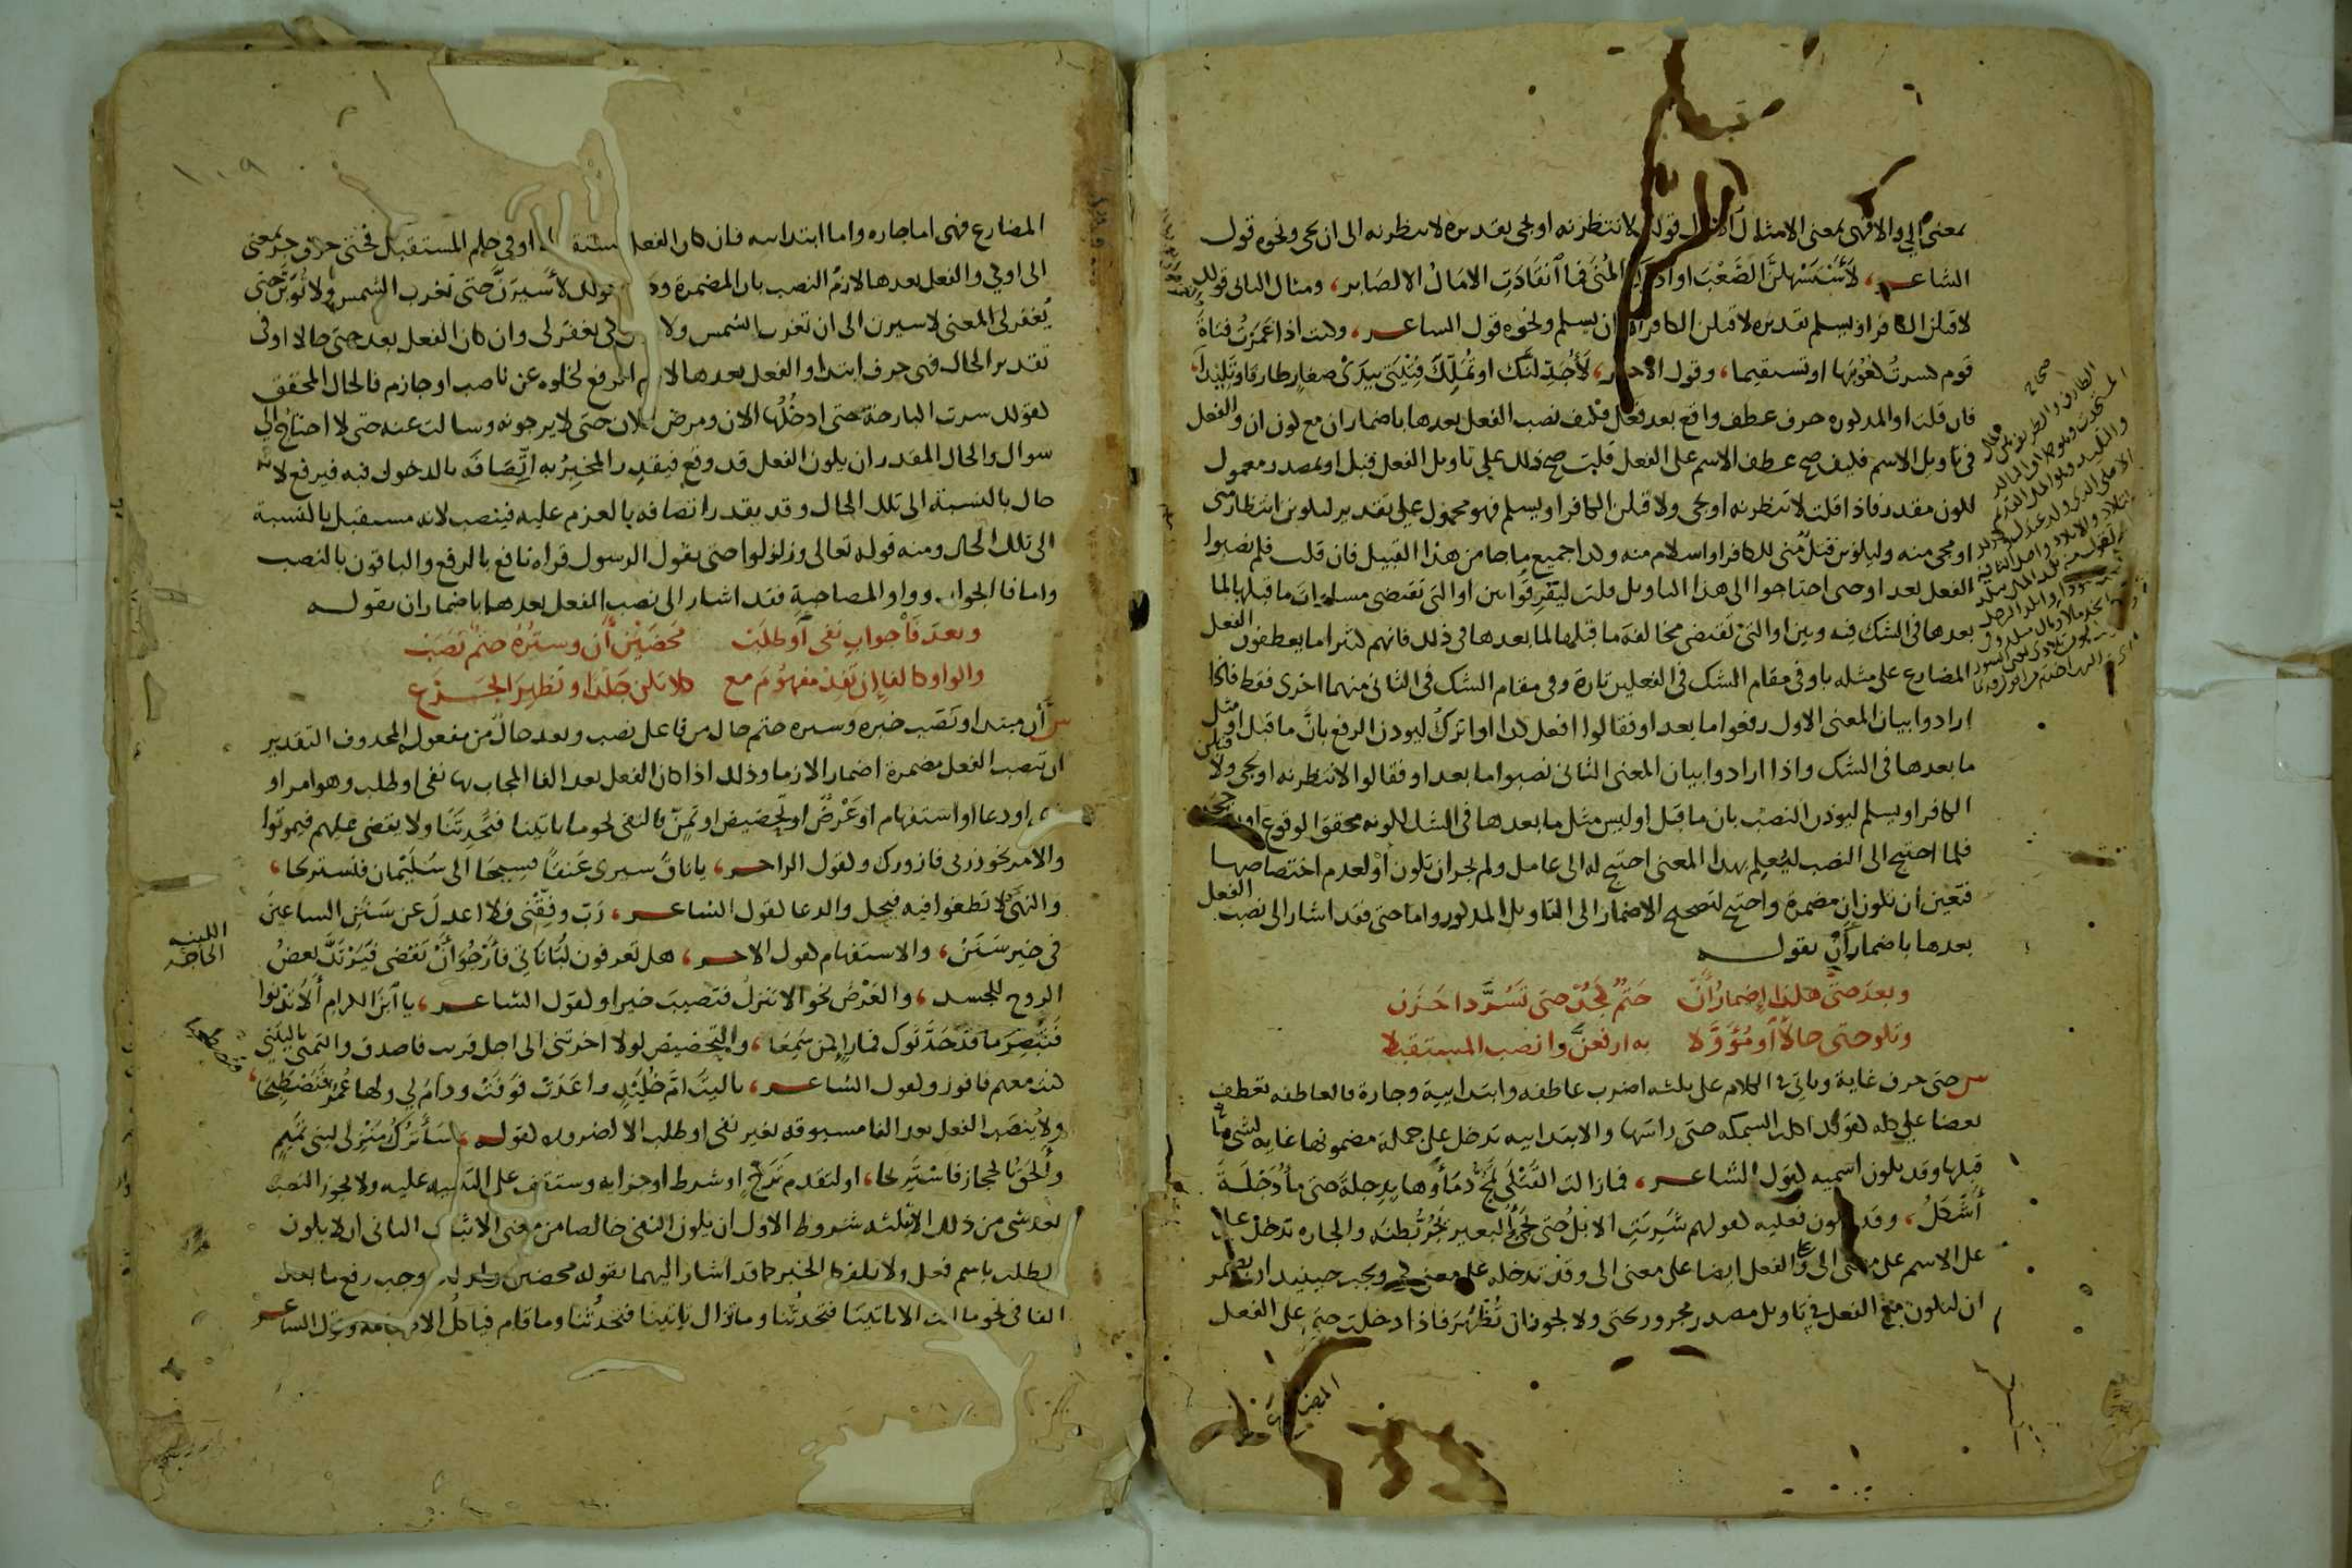 بمعنى الى والا فهى بمعنى الا مثال الاول قولك لانتظرنه او يجى تقديره لانتظرنه الى ان يجى ونحوه قول
الشاعر، لَأَسْتَسْهِلَنَّ الصَّعْبَ او ادرك المُنَى فما انقَادَتِ الآمَالُ الا لصَابر، ومثال الثانى قولك
لاقتلن الكافر او يسلم تقديره لاقتلن الكافر الا ان يسلم ونحوه قول الشاعر، وكنت اذا غَمَزْتُ قناةَ
قوم كسرتُ كُعُوبَها او تستقيما، وقول الاخر، لَأُجَدِّلَنَّك او تُمَلِّكَ فِتْيَتى بيَدَىْ صغارٍ طارفا وتَلِيدَا،
فان قلت او المذكوره حرف عطف واقع بعد فعل فكيف نصب الفعل بعدها باضمار ان مع كون ان والفعل
فى تاويل الاسم فكيف صح عطف الاسم على الفعل قلت صح ذلك على تاويل الفعل قبل او بمصدر معمول
لكون مقدر فاذا قلت لانتظرنه او يجى ولاقتلن الكافر او يسلم فهو محمول على تقدير ليكونن انتظار منى
او مجى منه وليكونن قتل منى للكافر او اسلام منه وكذا جميع ما جا من هذا القبيل فان قلت فلم نصبوا
الفعل بعد او حتى احتاجوا الى هذا التاويل قلت ليفرقوا بين او التى تقتضى مساواة ما قبلها لما
بعدها فى الشك فيه وبين او التى تقتضى مخالفة ما قبلها لما بعدها فى ذلك فانهم كثيرا ما يعطفون الفعل
المضارع على مثله باو فى مقام الشك فى الفعلين تارة وفى مقام الشك فى الثانى منهما اخرى فقط فاذا
ارادوا بيان المعنى الاول رفعوا ما بعد او فقالوا افعل كذا او اترك ليوذن الرفع بانّ ما قبل او مثل
ما بعدها فى الشك واذا ارادوا بيان المعنى الثانى نصبوا ما بعد او فقالوا لانتظرنه او يجى ولاقتلن
الكافر او يسلم ليوذن النصب بان ما قبل او ليس مثل ما بعدها فى الشك لكونه محقق الوقوع او
فلما احتيج الى النصب ليُعلم بهذا المعنى احتيج له الى عامل ولم يجز ان تكون او لعدم اختصاصها
فتعين ان تكون ان مضمرة واحتيج لتصحيح الاضمار الى التاويل المذكور واما حتى فقد اشار الى نصب الفعل
بعدها باضمار أن بقوله
وبعدَ حتى هكذا إضمارُ أن حَتْمٌ كجُدْ حتى تَسُرَّ ذا حَزَن
وتلو حتى حالاً أو مُؤَوَّلا به ارفعنّ وانصب المستقبلا
س حتى حرف غاية وياتى فى الكلام على ثلثه اضرب عاطفه وابتدائية وجارة فالعاطفه تعطف
بعضا على كله كقولك اكلت السمكه حتى راسَها والابتدائيه تدخل على جملة مضمونها غاية لشى ما
قبلها وقد يكون اسميه كقول الشاعر، فما زالت القَتْلَى تَمُجُّ دماؤها بدجلةَ حتى ماءُ دَجْلَةَ
أَشْكَلُ، وقد تكون فعليه كقولهم شَرِبَتِ الابلُ حتى يجىُ البعير يَجُرُّ بطنَه والجاره تدخل على
على الاسم على معنى الى وعلى الفعل ايضا على معنى الى وقد تدخله على معنى كى ويجب حينئذ ان تضمر
ان لتكون مع الفعل فى تاويل مصدر مجرور بحتى ولا يجوز ان تُظْهَرَ فاذا دخلت حتى على الفعل
المضارع
١٠٩
المضارع فهى اما جاره واما ابتدائيه فان كان الفعل او فى حكم المستقبل فحتى حرف جر بمعنى
الى او كى والفعل بعدها لازمُ النصب بان المضمرة قولك لأَسيرَنَّ حتى تغرب الشمس ولاتُوبَنَّ حتى
يُغفر لى المعنى لاسيرن الى ان تغرب الشمس ولا كى يغفر لى وان كان الفعل بعد حتى حالا او فى
تقدير الحال فهى حرف ابتدا والفعل بعدها لازم الرفع لخلوه عن ناصب او جازم فالحال المحقق
كقولك سرت البارحة حتى ادخُلُها الان ومرض فلان حتى لا يرجونه وسالت عنه حتى لا احتاج الى
سوال والحال المقدر ان يكون الفعل قد وقع فيقدر المخبِرُ به اتِّصافَه بالدخول فيه فيرفع لانه
حال بالنسبة الى تلك الحال وقد يقدر اتصافه بالعزم عليه فينصب لانه مستقبل بالنسبة
الى تلك الحال ومنه قوله تعالى وزلزلوا حتى يقول الرسول قراه نافع بالرفع والباقون بالنصب
واما فا الجواب وواو المصاحبة فقد اشار الى نصب الفعل بعدهما باضمار ان بقوله
وبعدَ فَا جوابِ نفى أو طلَبْ مَحْضَيْنِ أن وستْرُهُ حتمٌ نَصَبْ
والواو كالفا إن تُفِدْ مفهومَ مع كلا تكن جَلْدًا وتُظهرَ الجَزَع
س أن مبتدا ونَصَب خبره وستره حتم حال من فاعل نصب وبعد حالٌ من مفعوله المحذوف التقدير
ان تنصب الفعل مضمرة اضمارا لازما وذلك اذا كان الفعل بعد الفا المجاب بها نفى او طلب وهو امر او
نهى او دعا او استفهام او عَرْضٌ او تحضيض او تمنٍّ فالنفى نحو ما تاتينا فتُحَدِثَنا ولا يقضى عليهم فيموتوا
والامر نحو زرنى فازورك وكقول الراجز، يا ناقُ سيرى عَنَقًا فسيحَا الى سُلَيْمان فنستريحا،
والنهى لا تطغوا فيه فيحل والدعا كقول الشاعر، رَبِّ وفِقْنى فلا اعدلَ عن سَنَنِ الساعينَ
فى خيرِ سَنَنْ، والاستفهام كقول الاخر، هل تعرفون لُبَاناتى فأرْجُوَ أنْ تُقْضَى فيَرْتَدَّ بعضُ
الروح للجسد، والعَرْضُ نحو الا تنزلُ فتصيبَ خيرا وكقول الشاعر، يا ابنَ الكرام أَلَا تَدْنُوا
فتُبْصِرَ ما قد حَدَّثوك فما راءٍ كمن سَمِعَا، والتحضيض لولا اخرتنى الى اجل قريب فاصدق والتمنى يا ليتنى
كنت معهم فافوز وكقول الشاعر، يا ليتَ امَّ خُلَيْدٍ واعدَتْ فوَفَتْ ودام لى ولها عُمْرٌ فنَصْطَحِبَا،
ولا يُنصَب الفعل بعد الفا مسبوقه بغير نفى او طلب الا لضروره كقوله، سَأتركُ مَنْزلى لبنى تميمٍ
وأَلْحَقُ بالحجاز فاستَريحَا، او لتقدم تَرَجٍّ او شرط او جزائه وستقف على التنبيه عليه ولا يجوز النصب
بعد شى من ذلك الا بثلثه شروط الاول ان يكون النفى خالصا من معنى الاثبات الثانى ان لا يكون
الطلب باسم فعل ولا بلفظ الخبر وقد اشار اليهما بقوله محضين وجب رفع ما بعد
الفا فى نحو ما انت الا تاتينا فتحدثُنا وما تزال تاتينا فتحدثُنا وما قام فياكلُ الا طعامه وقول الشاعر